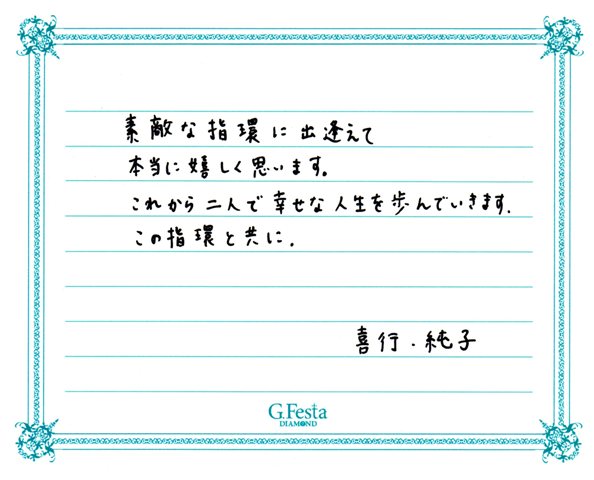 素敵な指環に出逢えて
本当に嬉しく思います。
これから二人で幸せな人生を歩んでいきます.
この指環と共に.
喜行.純子
G.Festa
DIAMOND